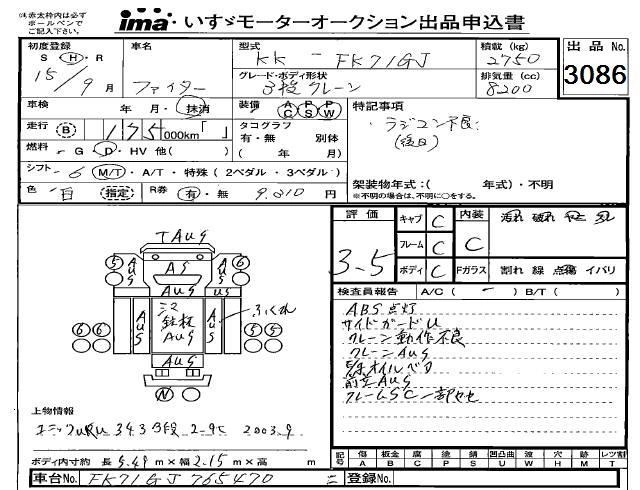 (注)赤太枠内は必ず
ボールペンで
ご記入下さい。
ima・いすゞモーターオークション出品申込書
初度登録
S・H・R
15／9月
車名
ファイター
型式
KK－FK71GJ
積載(kg)
2750
グレード・ボディ形状
3段クレーン
排気量(cc)
8200
出品No.
3086
車検 年 月・抹消
装備 AC PS PW
特記事項
・ラジコン不良
(後日)
走行 B 175,000km「 」
タコグラフ
有・無 別体
( 年 月)
燃料 －G・D・HV 他( )
シフト －6 M/T・A/T・特殊(2ペダル・3ペダル)
架装物年式:( 年式)・不明
※不明の場合は、不明に○をする。
色 白 指定 R券 有・無 9,210円
評価
3.5
キャブ C
フレーム C
ボディ C
内装
C
汚れ 破れ
Fガラス 割れ 線 点傷 イバリ
検査員報告 A/C( － ) B/T( )
ABS点灯
サイドガードU
クレーン動作不良
クレーンAUS
オイルベタ
前立AUS
フレームSC一部セセ
TAUS
5 AUS AS AUS 5
AUS
6 6 AUS シマ鉄板AUS AUS ふくれ 6 6
AUS
N
上物情報
ユニックURU 343 3段 2.9t 2003.9
ボディ内寸約 長 5.49m×幅 2.15m×高 m
記号 傷 板金 腐 塗 錆 凹凸曲 波 穴 跡 レツ割
A B C P S U W H M T
車台No. FK71GJ 765470
登録No.